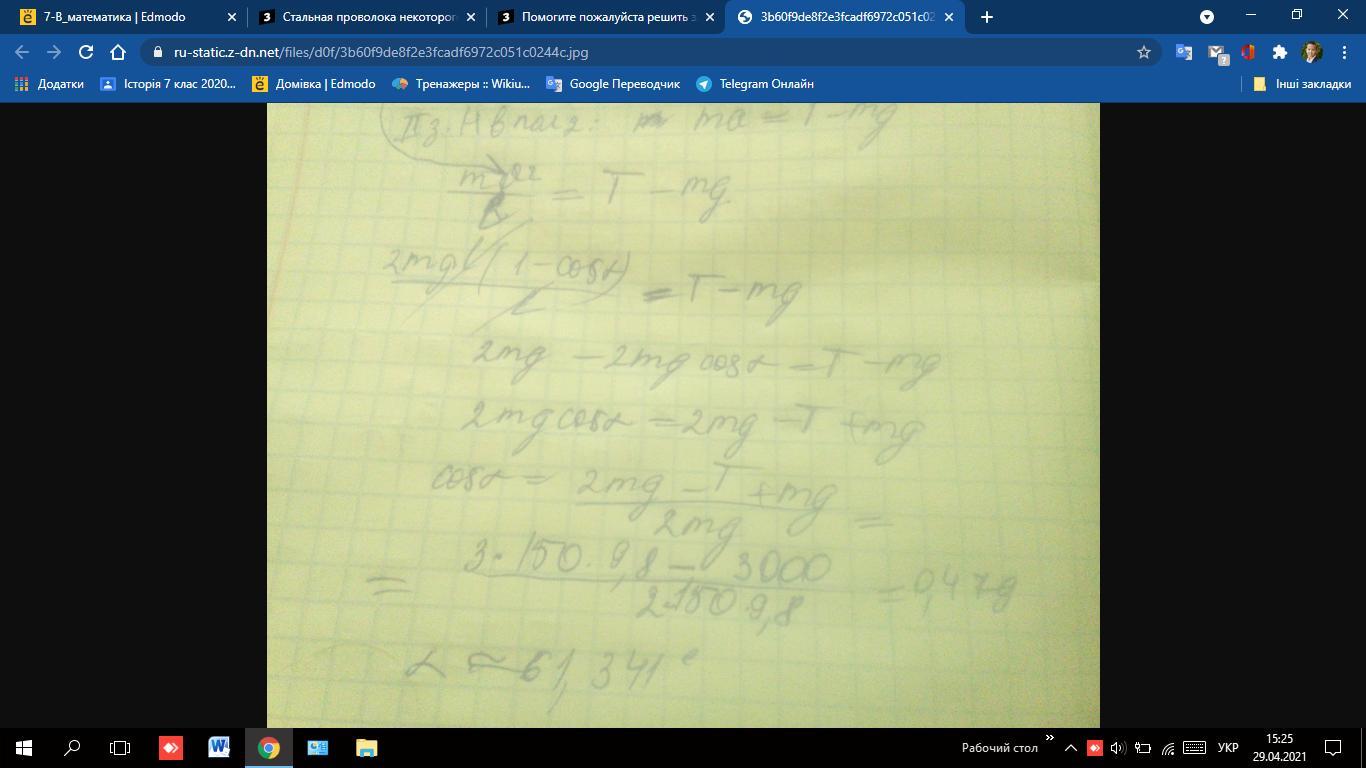 7-В_математика | Edmodo
Стальная проволока некоторог
Помогите пожалуйста решить з
3b60f9de8f2e3fcadf6972c051c02
ru-static.z-dn.net/files/d0f/3b60f9de8f2e3fcadf6972c051c0244c.jpg
Додатки
Історія 7 клас 2020...
Домівка | Edmodo
Тренажеры :: Wikiu...
Google Переводчик
Telegram Онлайн
Інші закладки
II з. Н в пол 2: ma = T - mg
= T - mg
2mgl(1-cosα)/l = T - mg
2mg - 2mg cosα = T - mg
2mg cosα = 2mg - T + mg
cosα = (2mg - T + mg)/2mg =
= (3·150·9,8 - 3000)/2·150·9,8 = 0,479
α ≈ 61,341°
Рабочий стол
УКР
15:25
29.04.2021